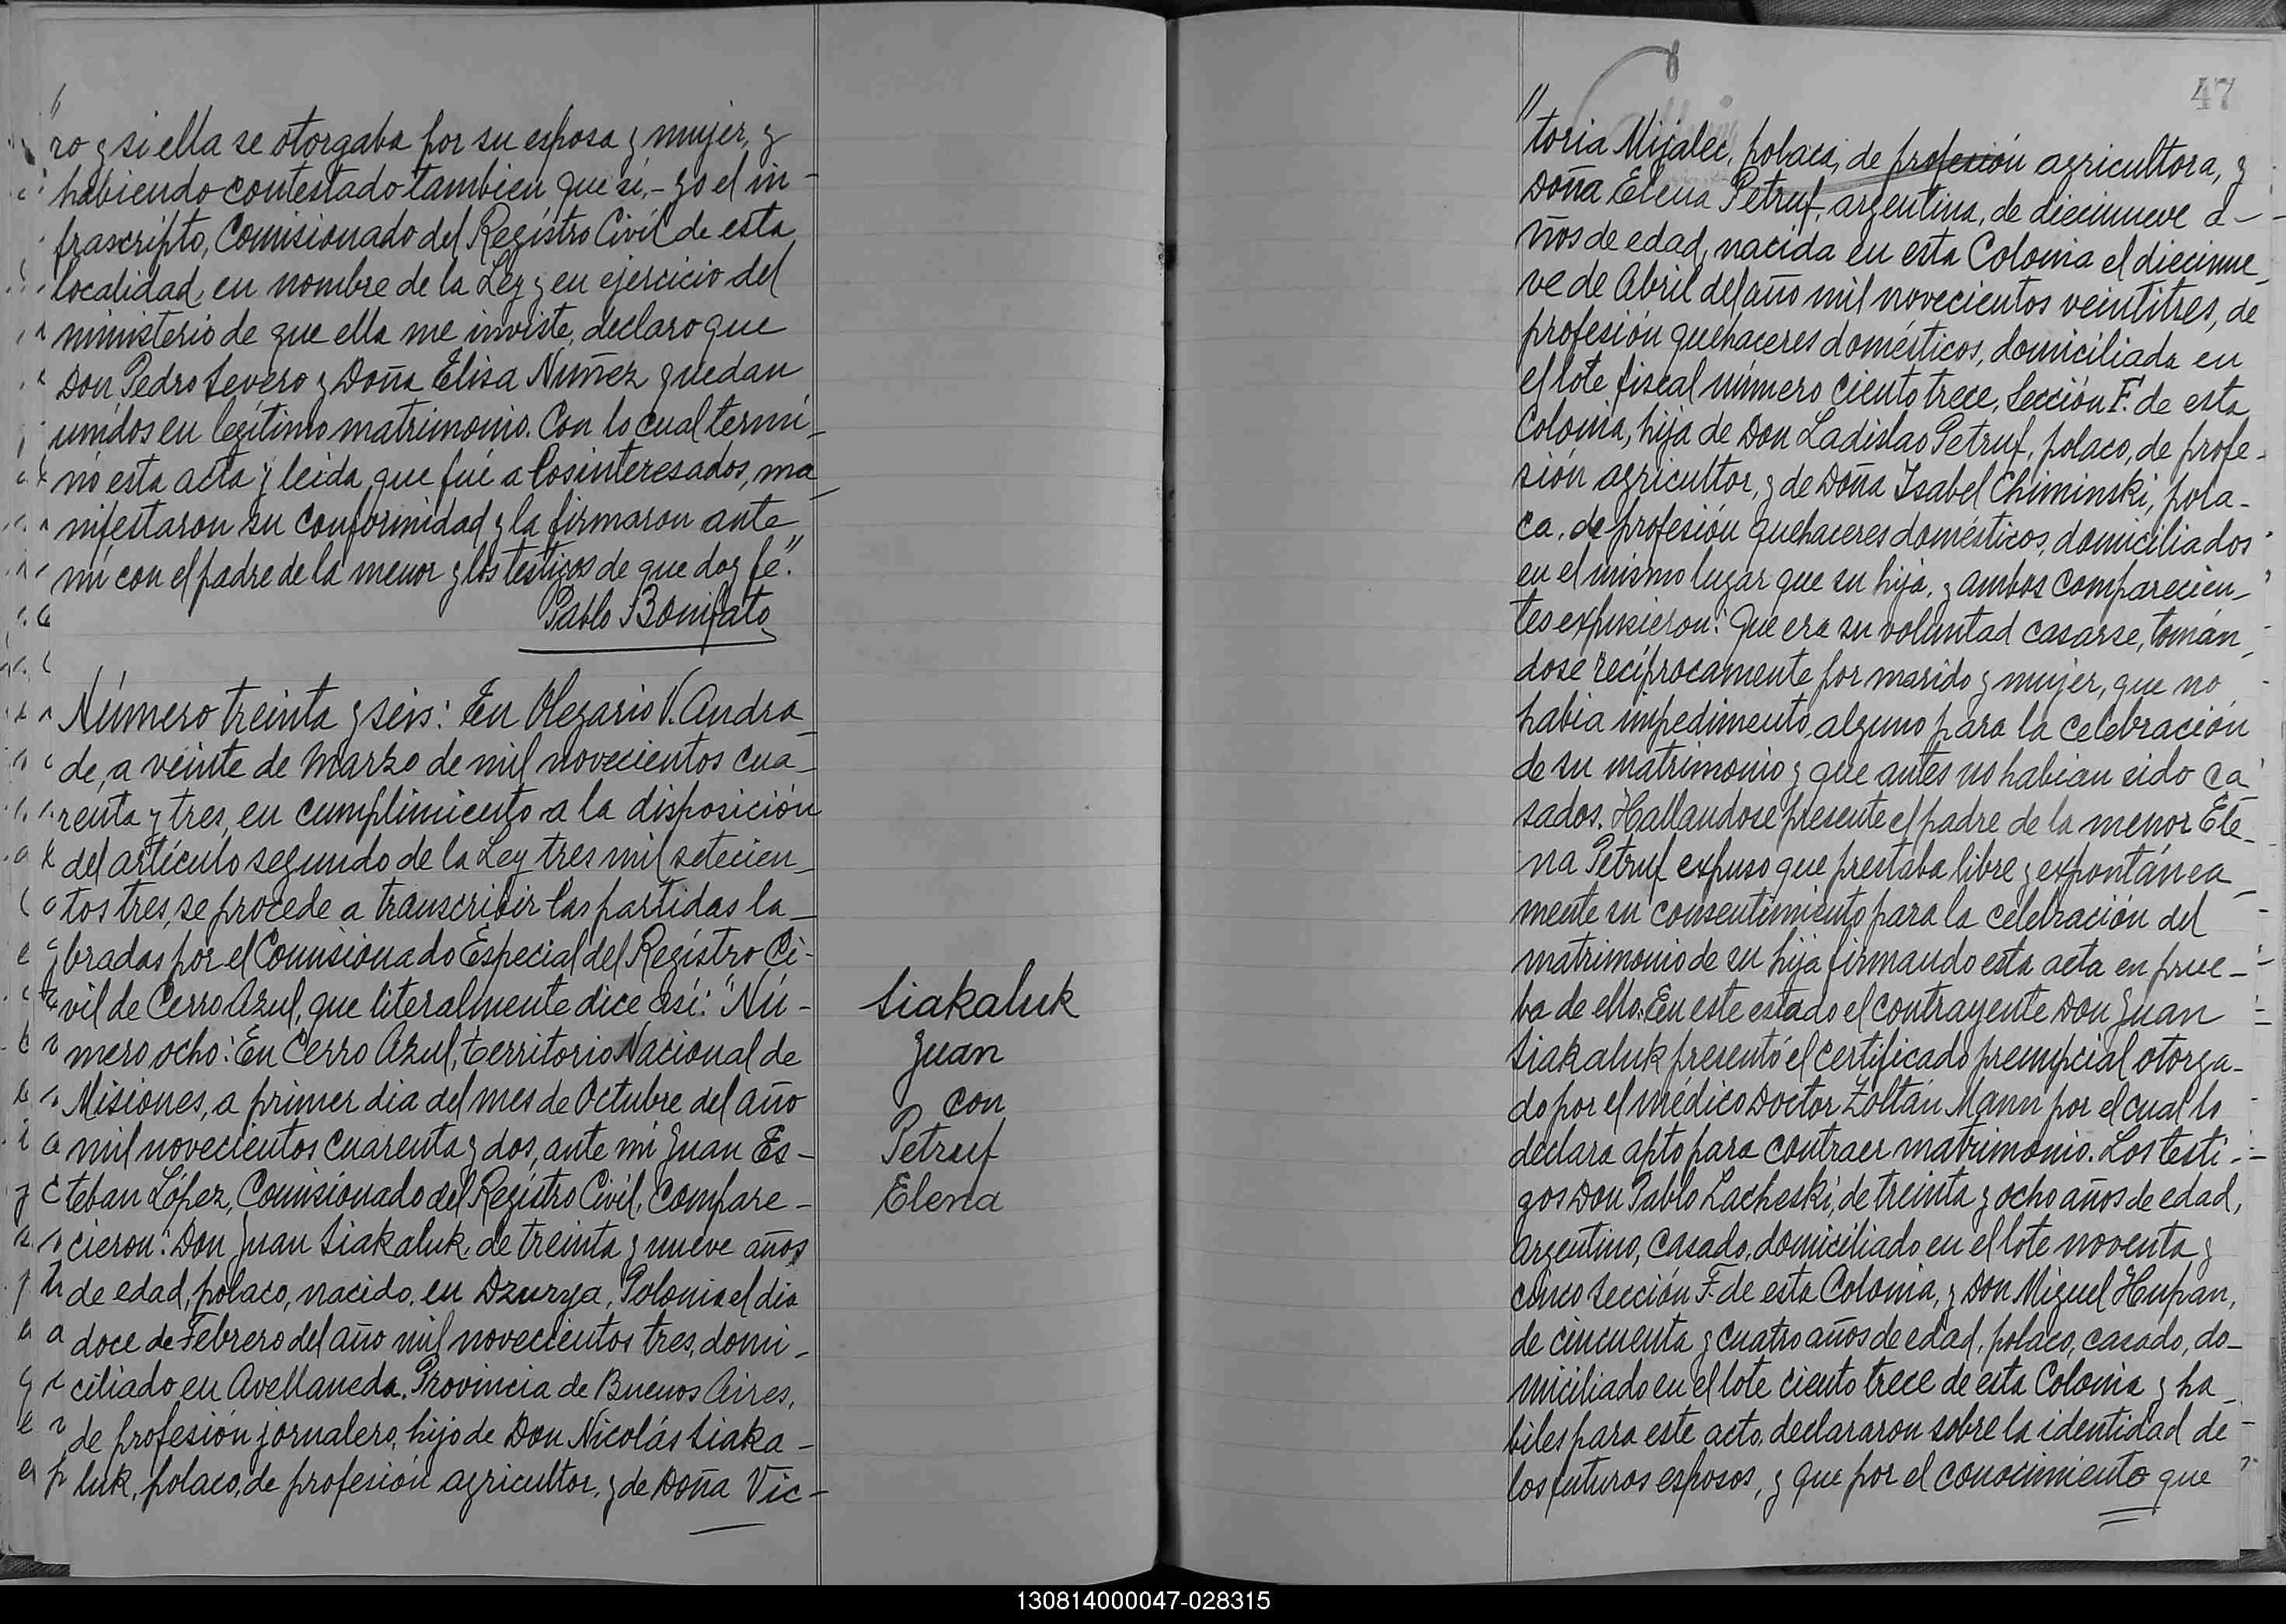 "ro y si ella se otorgaba por su esposa y mujer, y
habiendo contestado tambien que si,- yo el in-
frascripto, Comisionado del Registro Civil de esta
localidad, en nombre de la Ley y en ejercicio del
ministerio de que ella me inviste, declaro que
Don Pedro Severo y Doña Elisa Nuñez quedan
unidos en legítimo matrimonio. Con lo cual termi-
nó esta acta y leida que fué a los interesados, ma-
nifestaron su conformidad y la firmaron ante
mí con el padre de la menor y los testigos de que doy fe".
Pablo Bonifato
Número treinta y seis: En Olegario V. Andra-
de, a veinte de Marzo de mil novecientos cua-
renta y tres, en cumplimiento a la disposición
del artículo segundo de la Ley tres mil setecien-
tos tres, se procede a transcribir las partidas la-
bradas por el Comisionado Especial del Registro Ci-
vil de Cerro Azul, que literalmente dice así: "Nú-
mero ocho: En Cerro Azul, territorio Nacional de
Misiones, a primer dia del mes de Octubre del año
mil novecientos cuarenta y dos, ante mi Juan Es-
teban López, Comisionado del Registro Civil, compare-
cieron: Don Juan Siakaluk, de treinta y nueve años
de edad, polaco, nacido en Dzurya, Polonia el dia
doce de Febrero del año mil novecientos tres, domi-
ciliado en Avellaneda, Provincia de Buenos Aires,
de profesión jornalero, hijo de Don Nicolás Siaka-
luk, polaco, de profesión agricultor, y de Doña Vic-
Siakaluk
Juan
con
Petruf
Elena
47
"toria Mijalec, polaca, de profesión agricultora, y
Doña Elena Petruf, argentina, de diecinueve a-
ños de edad, nacida en esta Colonia el diecinue-
ve de Abril del año mil novecientos veintitres, de
profesión quehaceres domésticos, domiciliada en
el lote fiscal número ciento trece, Sección F. de esta
Colonia, hija de Don Ladislao Petruf, polaco, de profe-
sión agricultor, y de Doña Isabel Chiminski, pola-
ca, de profesión quehaceres domésticos, domiciliados
en el mismo lugar que su hija, y ambos comparecien-
tes expusieron: Que era su voluntad casarse, tomán-
dose recíprocamente por marido y mujer, que no
habia impedimento alguno para la celebración
de su matrimonio y que antes no habian sido ca-
sados. Hallandose presente el padre de la menor Ele-
na Petruf expuso que prestaba libre y expontánea-
mente su consentimiento para la celebración del
matrimonio de su hija firmando esta acta en prue-
ba de ello. En este estado el contrayente Don Juan
Siakaluk presentó el certificado prenupcial otorga-
do por el médico Doctor Zoltán Mann por el cual lo
declara apto para contraer matrimonio. Los testi-
gos Don Pablo Lacheski, de treinta y ocho años de edad,
argentino, casado, domiciliado en el lote noventa y
cinco sección F. de esta Colonia, y Don Miguel Hupan,
de cincuenta y cuatro años de edad, polaco, casado, do-
miciliado en el lote ciento trece de esta Colonia y ha-
biles para este acto, declararon sobre la identidad de
los futuros esposos, y que por el conocimiento que
130814000047-028315